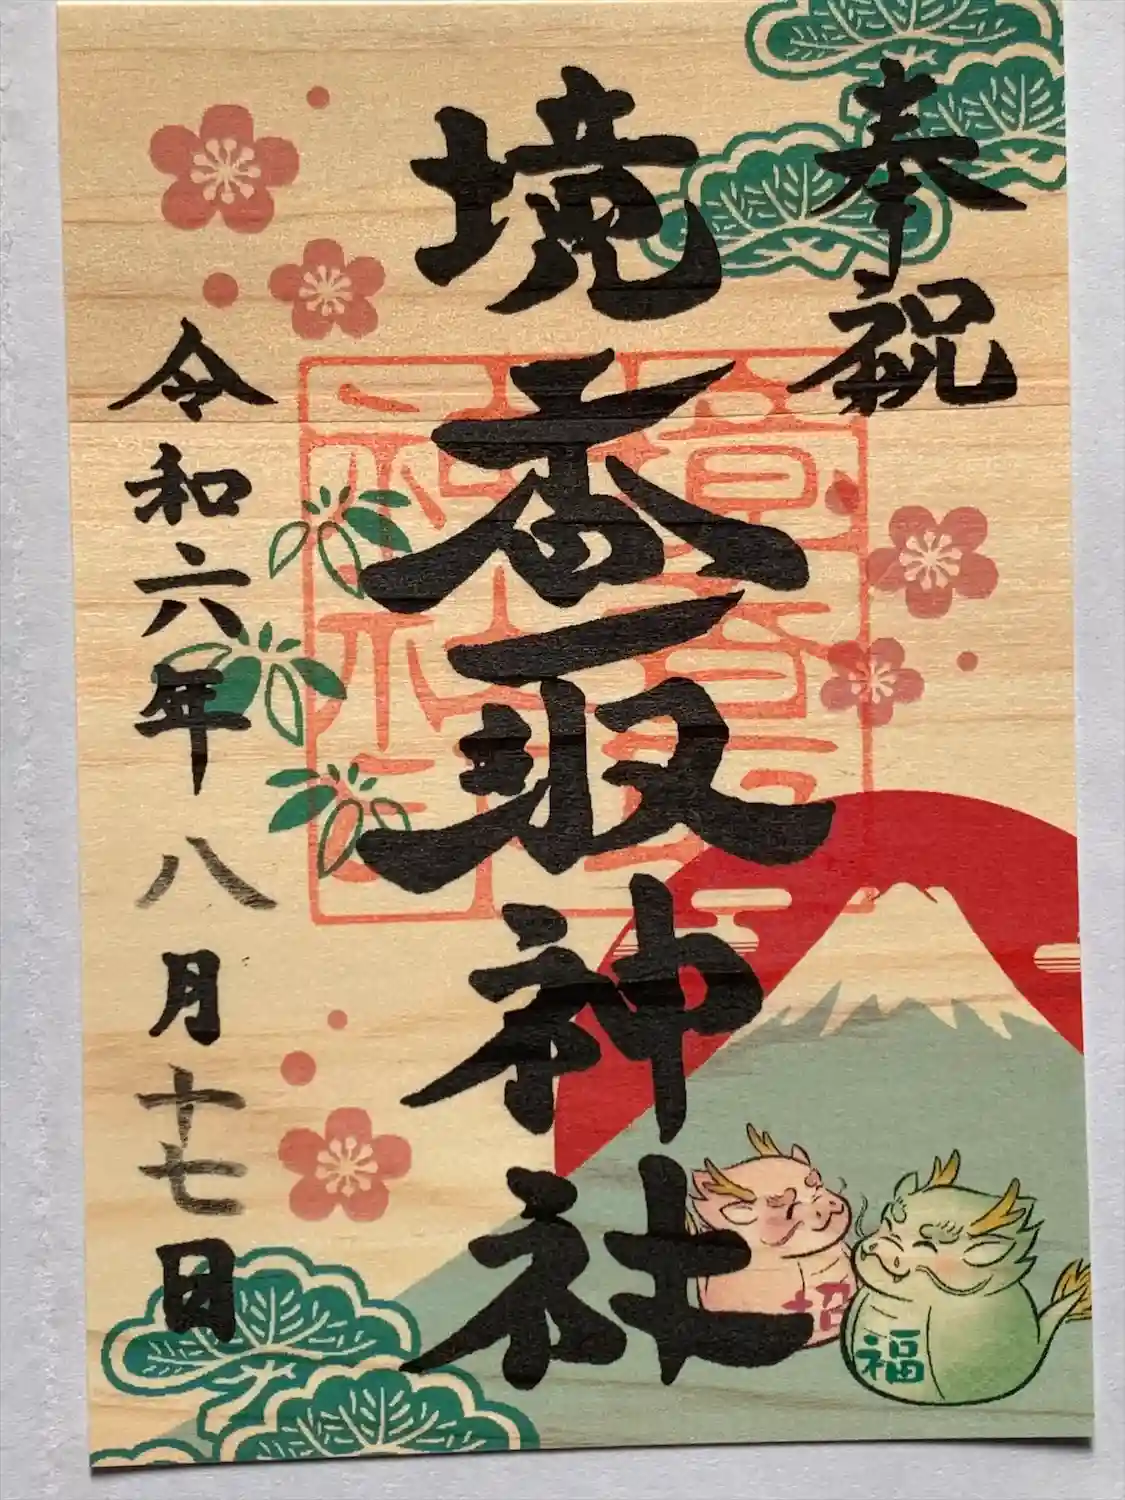 奉祝
境香取神社
令和六年八月十七日
招
福